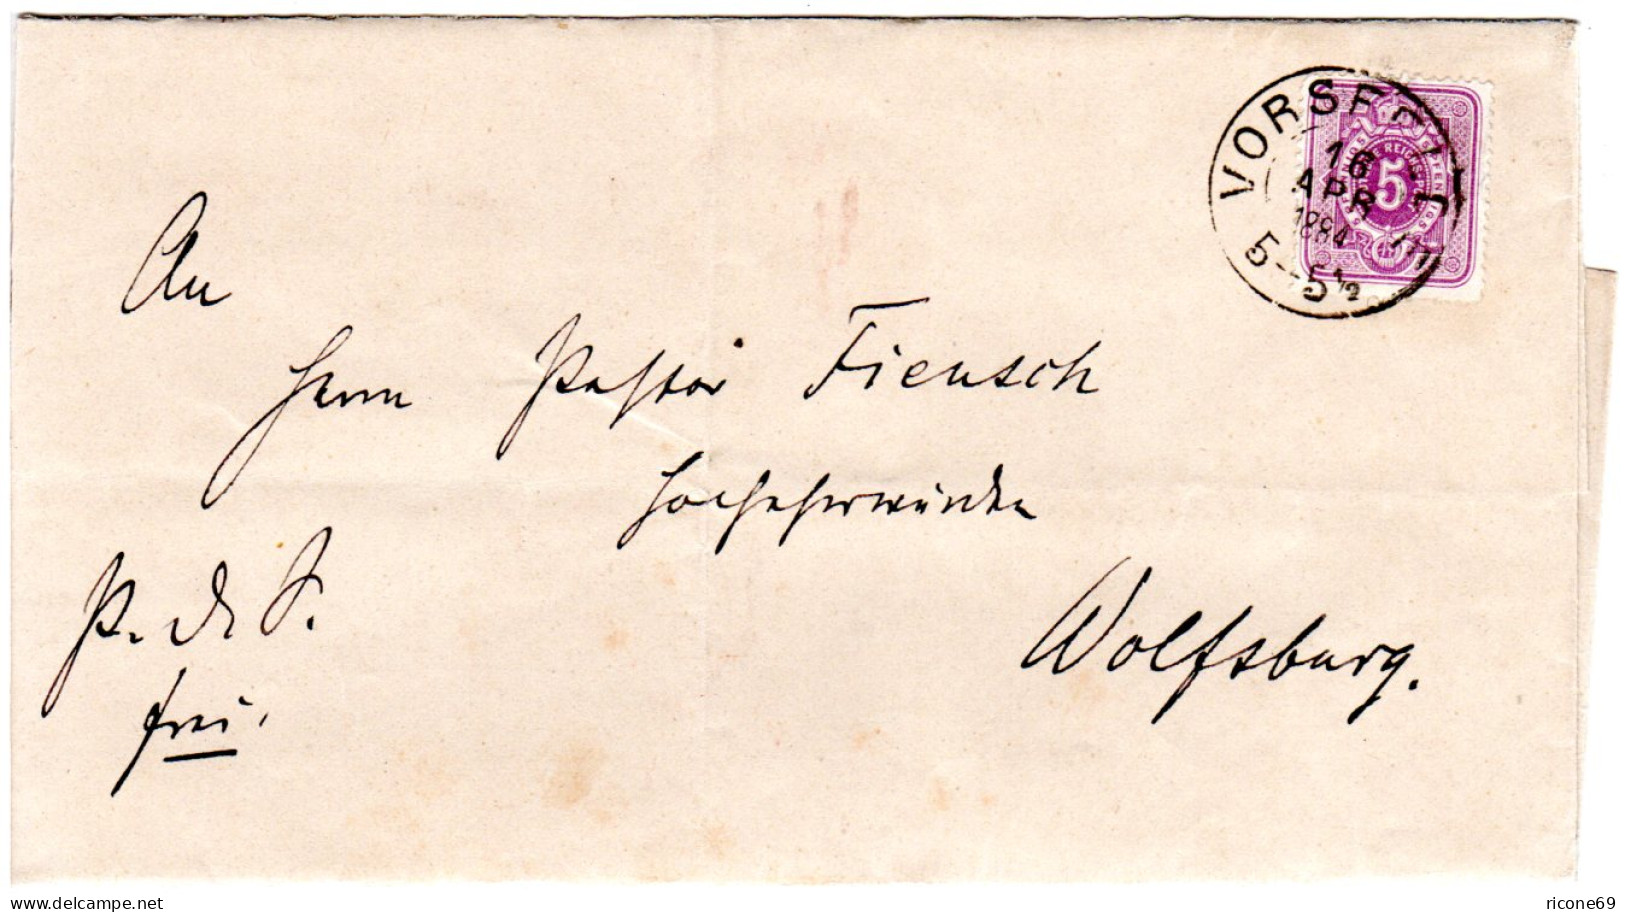 VORSFELDE
16
APR
1884
5-5½
5
An
Herrn Pastor Fiensch
Hochehrwürden
Wolfsburg.
P. d. S.
frei.
ricone69